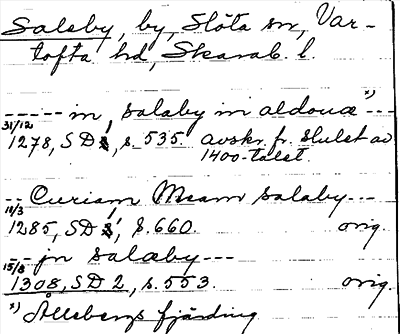 Saleby, by, Slöta sn, Var-
tofta hd, Skarab. l.
----- in, salaby in aldoua x) ---
31/12
1278, SD 1, s. 535. avskr. fr. slutet av
1400-talet.
-- Curiam Meam salaby ---
11/3
1285, SD 1, s. 660. orig.
--- jn salæby ---
15/8
1308, SD 2, s. 553. orig.
x) Ållebergs fjärding